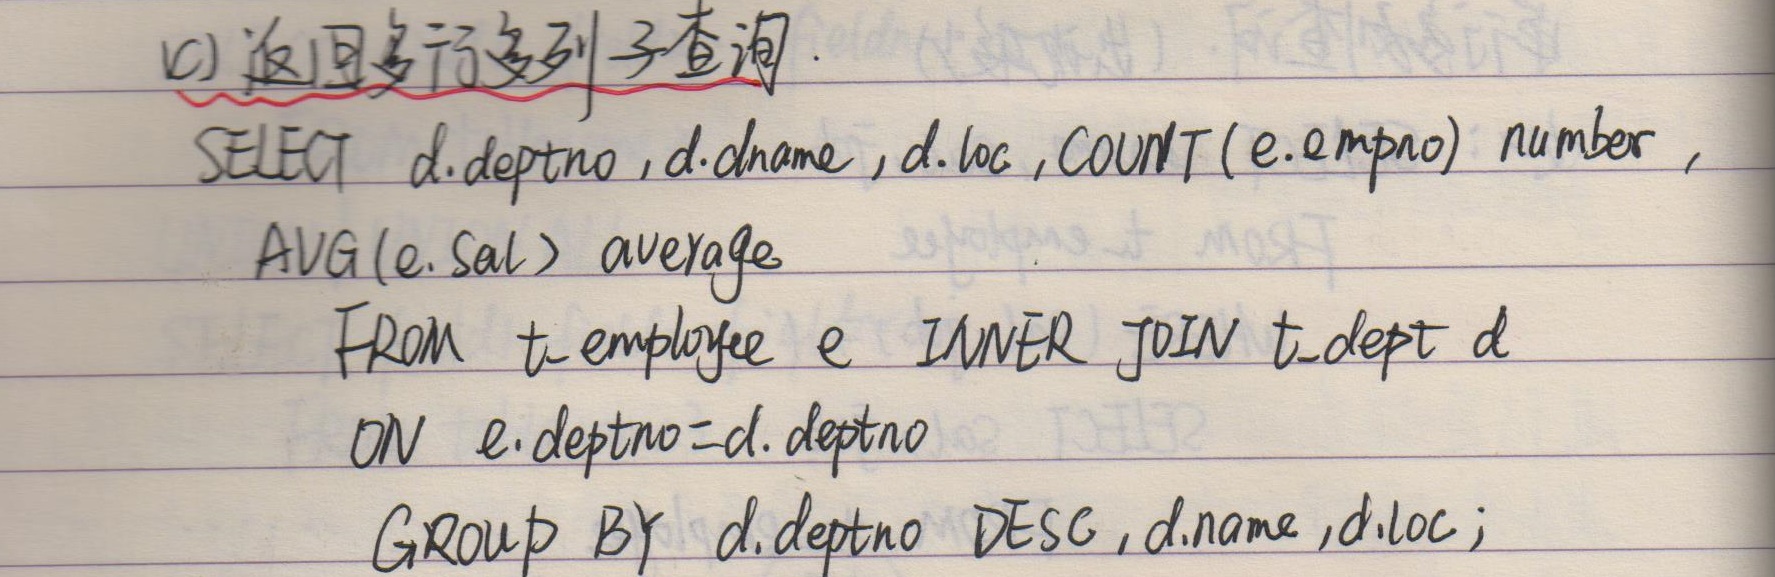 (c) 返回多行多列子查询.
SELECT d.deptno, d.dname, d.loc, COUNT(e.empno) number,
AVG(e.sal) average
FROM t_employee e INNER JOIN t_dept d
ON e.deptno=d.deptno
GROUP BY d.deptno DESC, d.name, d.loc;